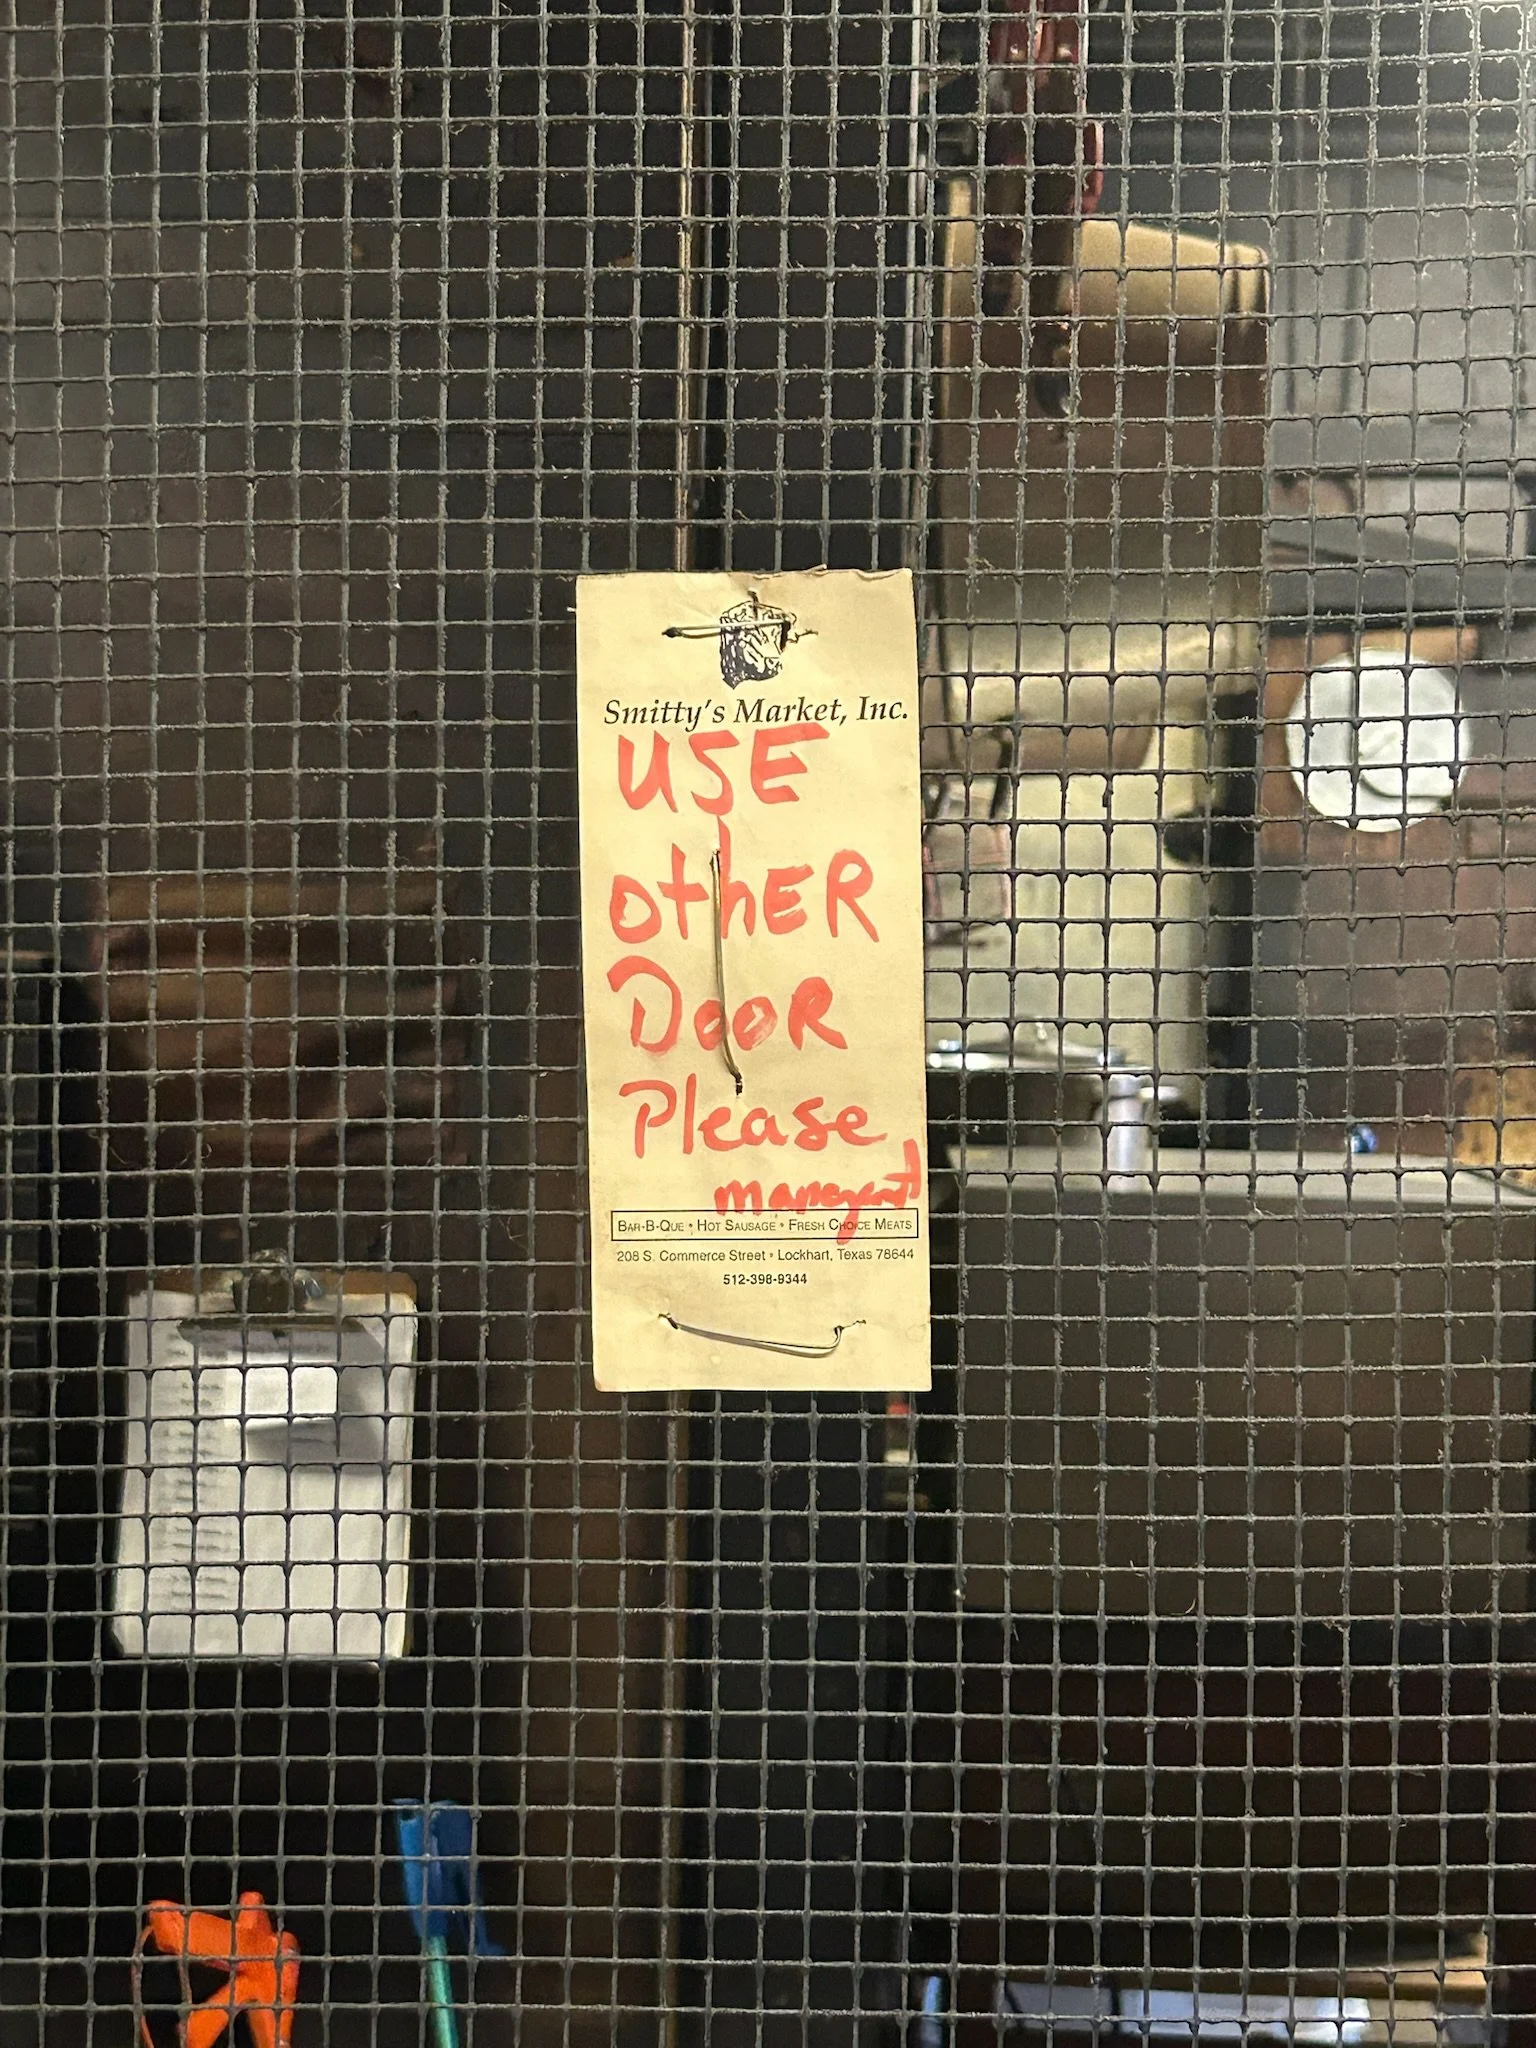 Smitty's Market, Inc.
USE
othER
DooR
Please
BAR-B-QUE • HOT SAUSAGE • FRESH CHOICE MEATS
208 S. Commerce Street • Lockhart, Texas 78644
512-398-9344